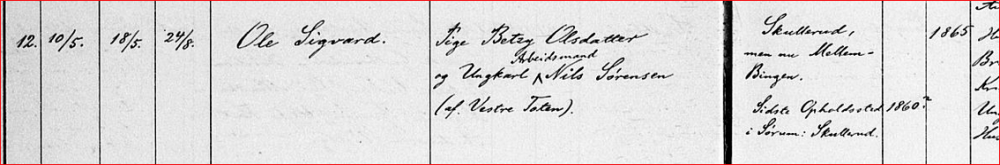 12. 10/5. 18/5. 24/8. Ole Sigvard. Pige Betzy Olsdatter Skullerud, 1865
men nu Mellem-
Arbeidsmand
og Ungkarl ^ Nils Sørensen Bingen.
(af Vestre Toten). Sidste Opholdssted 1860?
i Sørum: Skullerud.